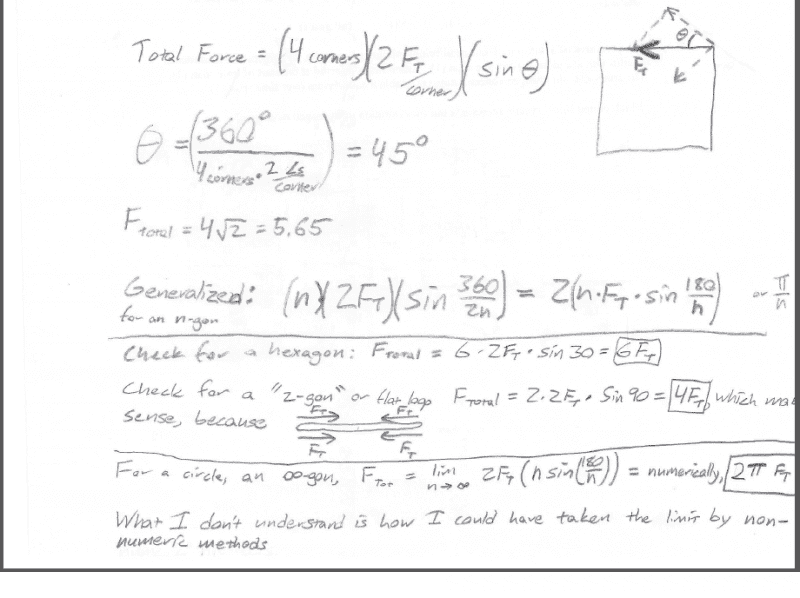 Total Force = (4 corners)(2 F_T/corner)(sin θ)
θ
F_T
θ = (360° / (4 corners · 2 ∠s/corner)) = 45°
F_Total = 4√2 = 5.65
Generalized: (n)(2F_T)(sin 360/2n) = 2(n·F_T·sin 180/n) or π/n
for an n-gon
Check for a hexagon: F_Total = 6·2F_T·sin 30 = 6F_T
Check for a "2-gon" or flat loop F_Total = 2·2F_T·Sin 90 = 4F_T, which ma
sense, because
F_T F_T
F_T F_T
For a circle, an ∞-gon, F_Tot = lim n→∞ 2F_T(n sin(180/n)) = numerically, 2π F_T
What I don't understand is how I could have taken the limit by non-
numeric methods